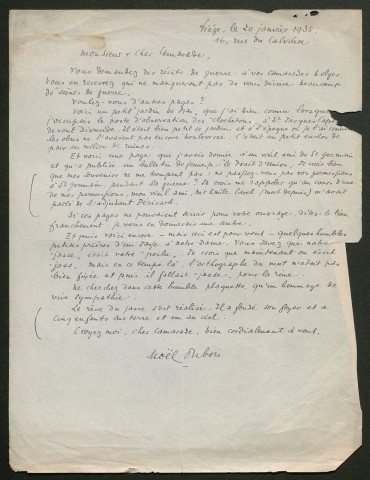 Liège, le 20 janvier 1935
16, rue du Calvaire
Monsieur & Cher Camarade,
Vous demandez des récits de guerre à vos camarades belges,
vous en recevrez qui ne manqueront pas de vous décrire beaucoup
de scènes de guerre.
Voulez-vous d'autres pages ?
Voici un petit jardin de                que j'ai bien connu lorsque
j'occupais le poste d'observation des "Clochetons", à St Jacques Capelle
devant Dixmude. Il était bien petit ce jardin et à l'époque où je l'ai connu
les obus ne l'avaient pas encore bouleversé. C'était un petit coin de
paix au milieu de ruines.
Et voici une page que j'avais donnée à un vieil ami de St Germain
et qu'il a publiée au bulletin de                  Je crois bien
que mes souvenirs ne me trompent pas : ne passiez-vous pas vos permissions
à St Germain, pendant la guerre ? Je crois me rappeler qu'au cours d'une
de mes permissions, mon vieil ami, Mr Emile          (mort depuis) m'avait
parlé de l'adjudant Péricard.
Si ces pages ne pouvaient servir pour votre ouvrage, dites-le bien
franchement, je vous en donnerais une autre.
Et puis voici encore - mais ceci est pour vous - quelques humbles
petites prières d'un Jasse à Notre Dame. Vous savez que notre
"Jasse" était votre "poilu". Je crois que maintenant on écrit
Jass, mais en ce temps-là, l'orthographe du mot n'était pas
bien fixée et puis il fallait "Jasse" pour la rime.
Ne cherchez dans cette humble plaquette qu'un hommage de
vive sympathie.
Le rêve du Jasse s'est réalisé. Il a fondé son foyer et a
cinq enfants sur terre et un au ciel.
Croyez moi, cher Camarade, bien cordialement à vous.
Noël Dubois